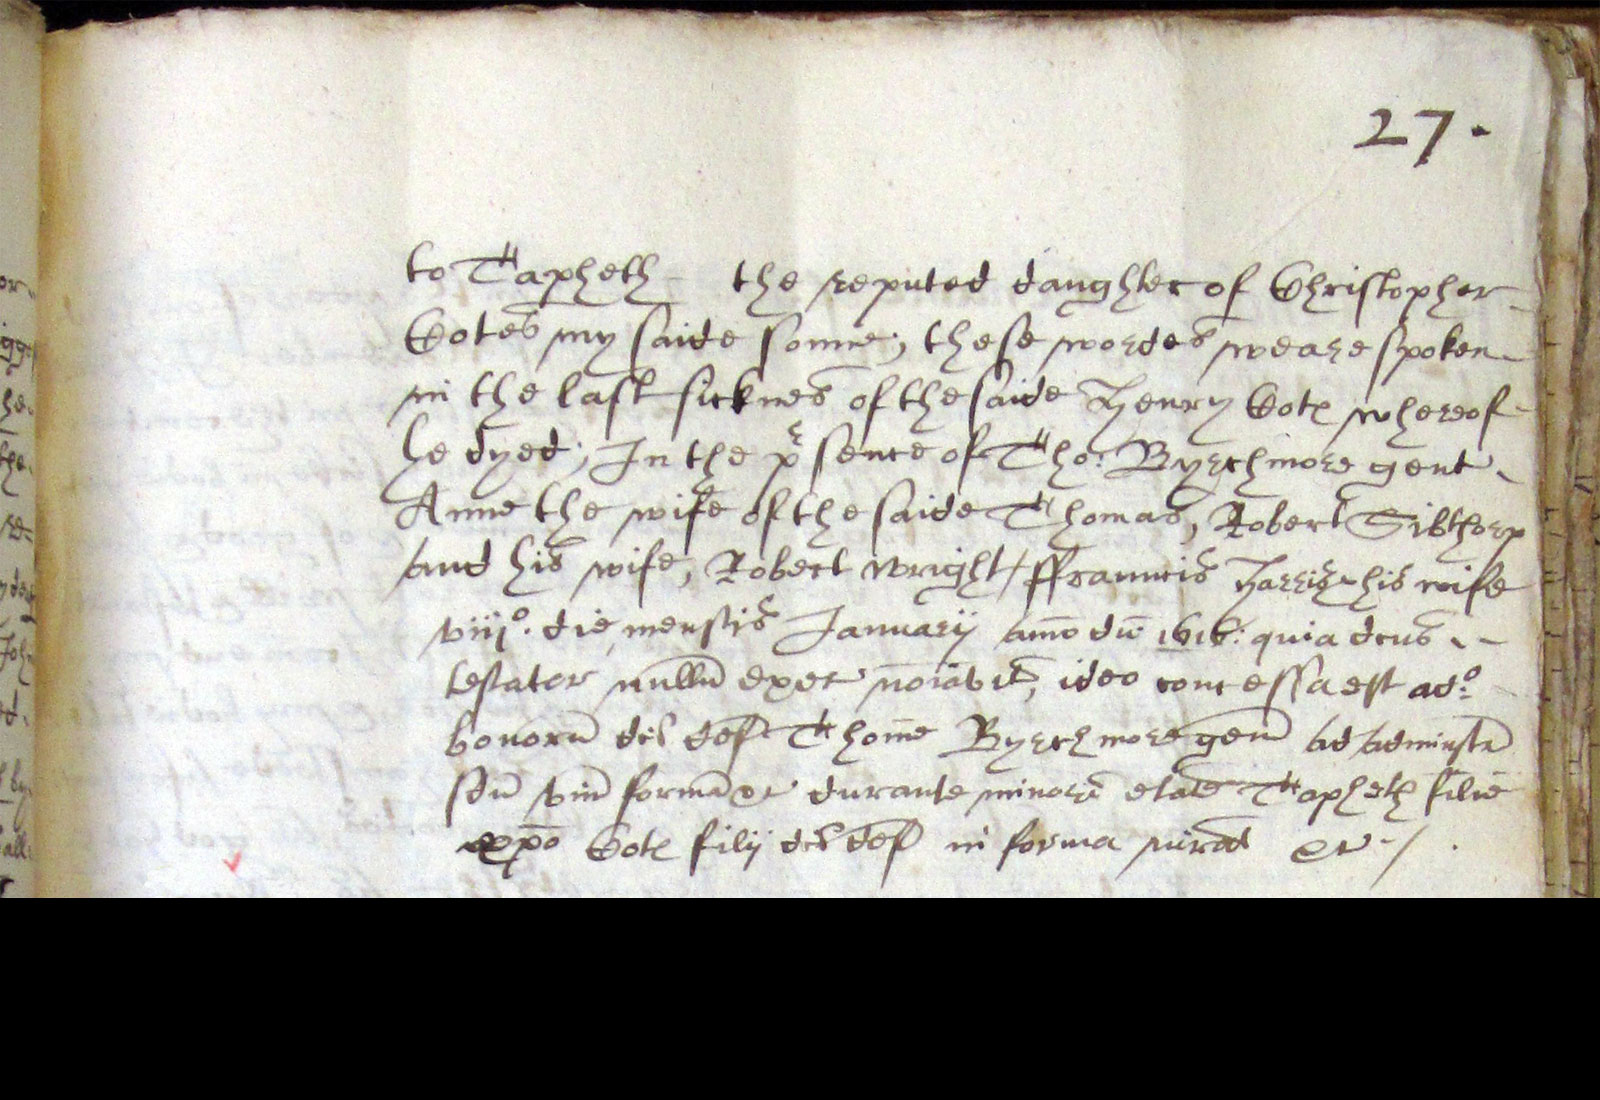 27.
to Tapheth the reputed daughter of Christopher
Cotes my saide sonne; these wordes weare spoken
in the last sicknes of the saide Henry Cote whereof
he dyed; In the pr sence of Tho: Byrchmore gent
Anne the wife of the saide Thomas, Robert Sibthorp
and his wife, Robert Wright / ffrauncis Harris his wife
viijo. die mensis January anno dni 1616: quia dcus
testator nullu exec noiavit, ideo concessa est ado:
bonoru dci def Thome Byrchmore gen ad administr
 forma &c durante minori etate Tapheth filie
xpo Cote filij dci def in forma iurat &c /